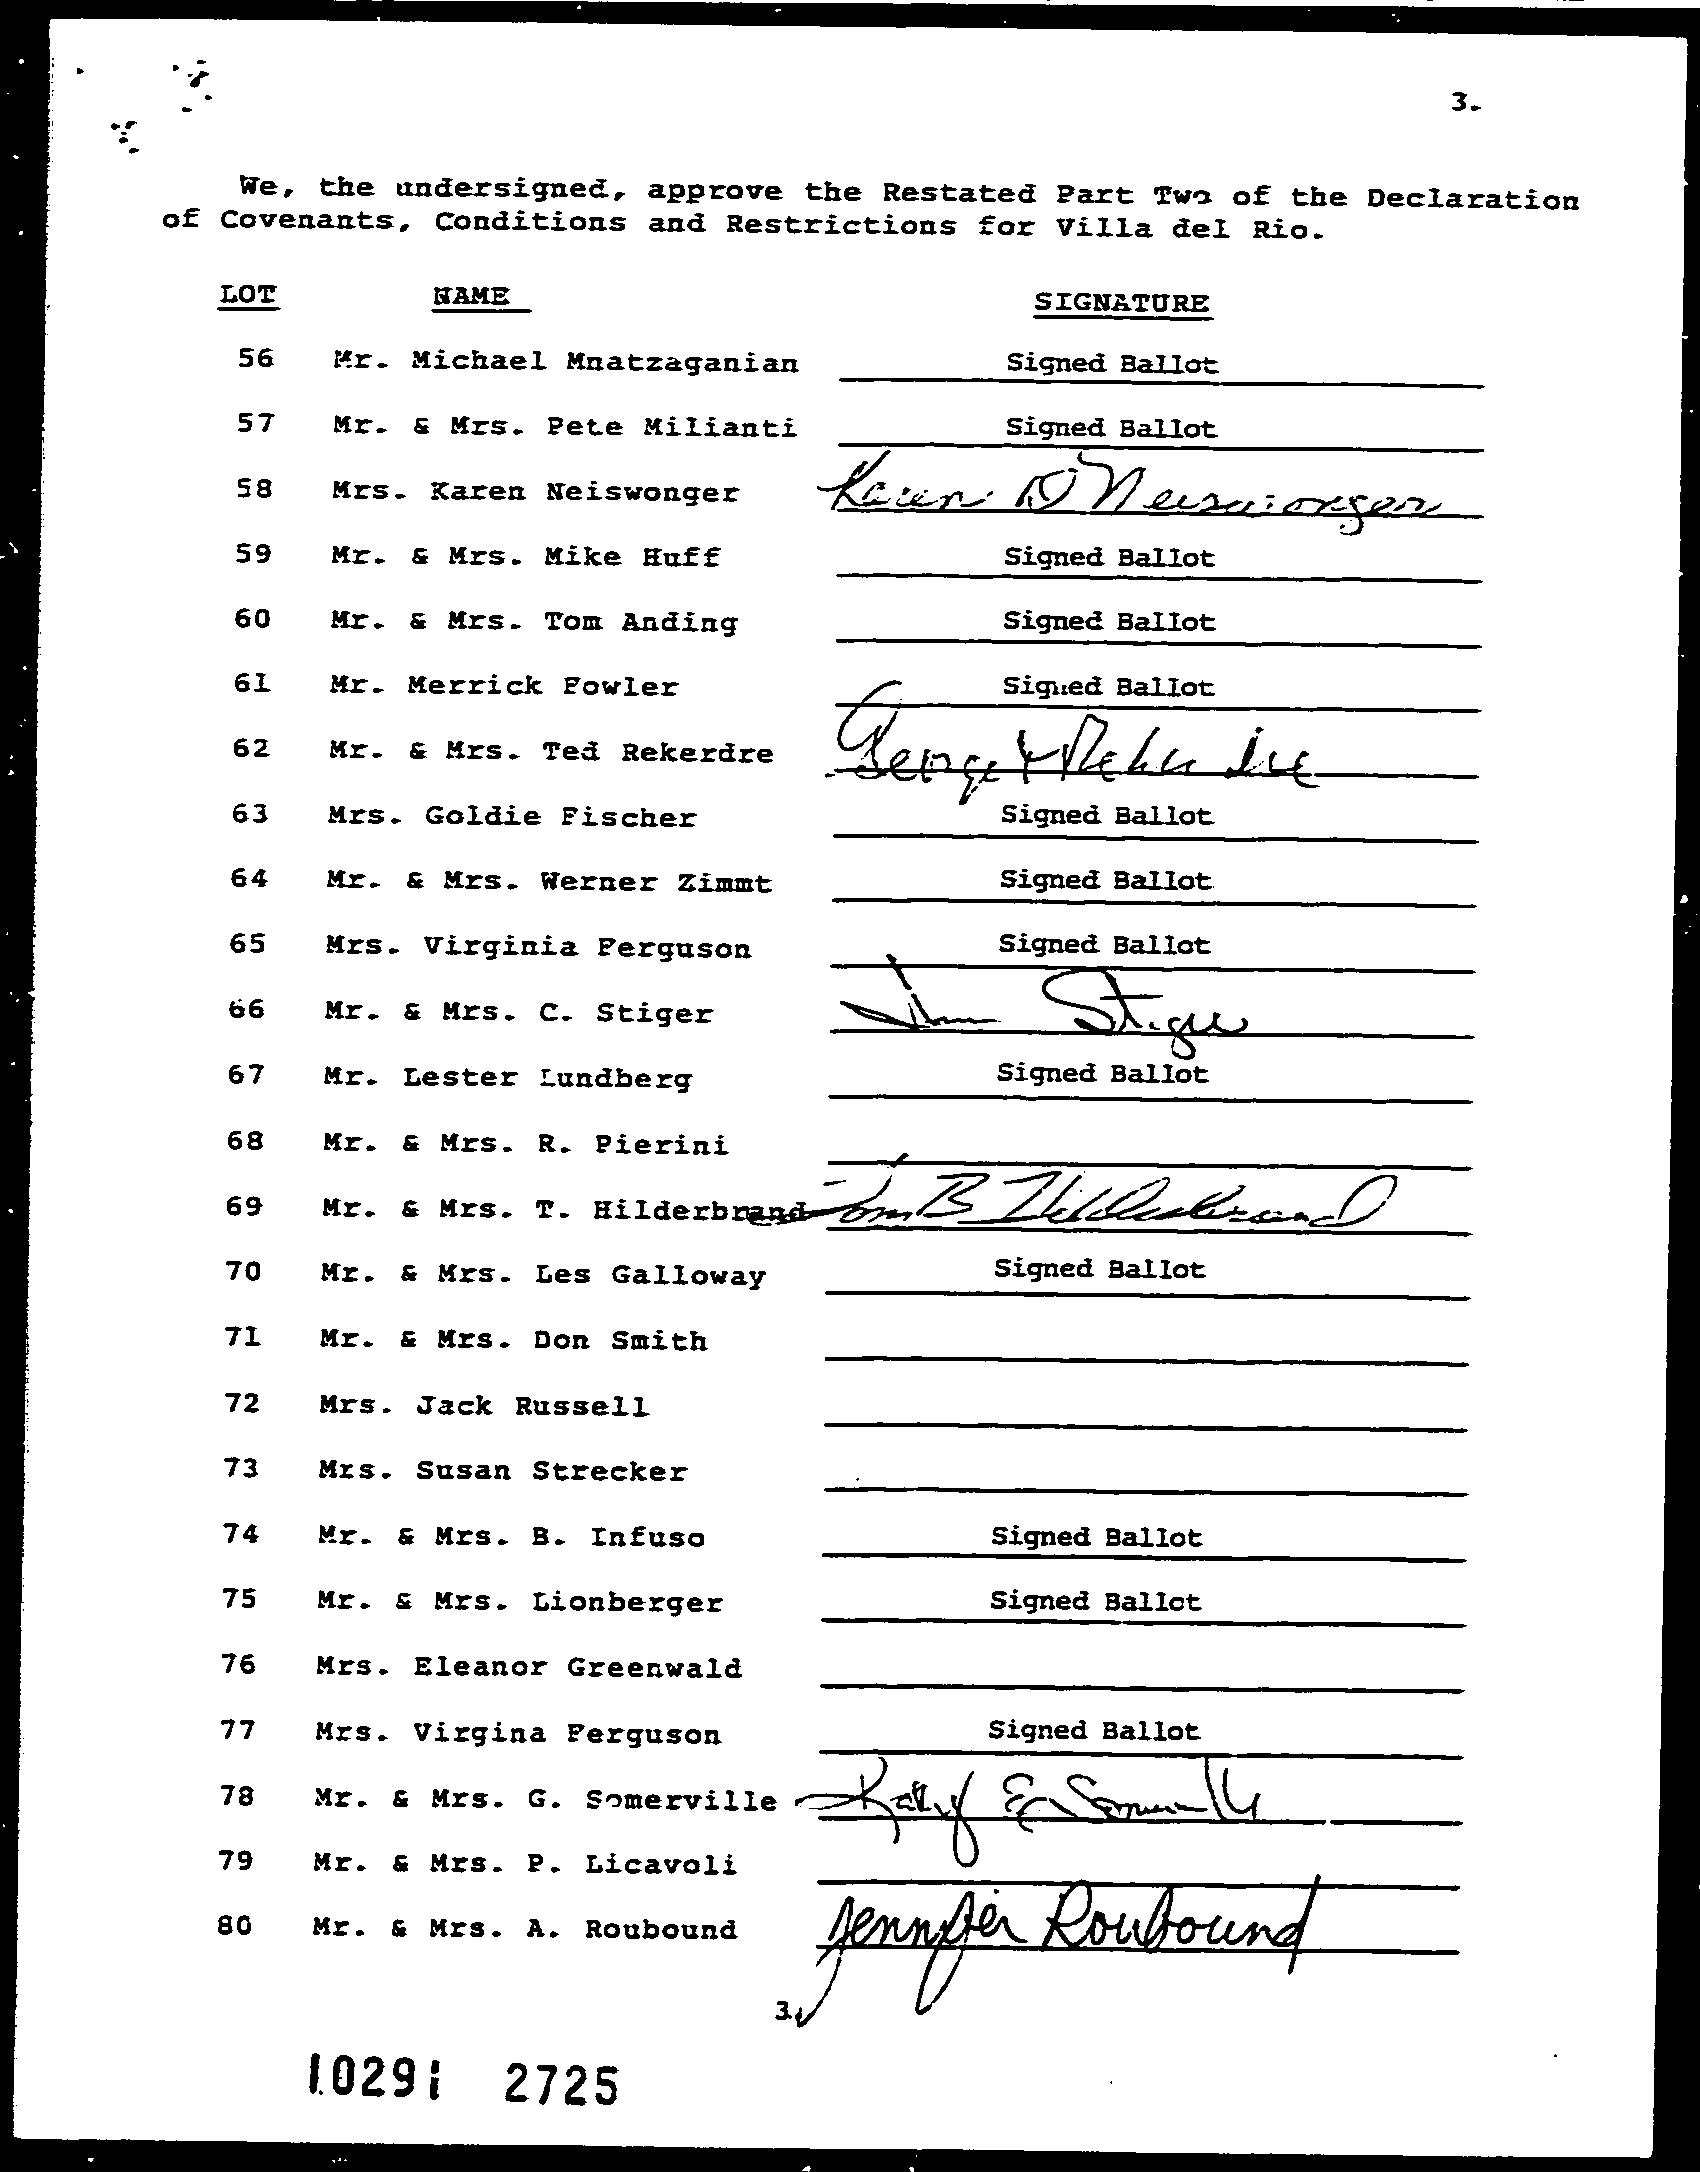 3.
We, the undersigned, approve the Restated Part Two of the Declaration
of Covenants, Conditions and Restrictions for Villa del Rio.
LOT NAME SIGNATURE
56 Mr. Michael Mnatzaganian Signed Ballot
57 Mr. & Mrs. Pete Milianti Signed Ballot
58 Mrs. Karen Neiswonger Karen D Neiswonger
59 Mr. & Mrs. Mike Huff Signed Ballot
60 Mr. & Mrs. Tom Anding Signed Ballot
61 Mr. Merrick Fowler Signed Ballot
62 Mr. & Mrs. Ted Rekerdre George Rekerdre
63 Mrs. Goldie Fischer Signed Ballot
64 Mr. & Mrs. Werner Zimmt Signed Ballot
65 Mrs. Virginia Ferguson Signed Ballot
66 Mr. & Mrs. C. Stiger Stiger
67 Mr. Lester Lundberg Signed Ballot
68 Mr. & Mrs. R. Pierini
69 Mr. & Mrs. T. Hilderbrand Tom B Hilderbrand
70 Mr. & Mrs. Les Galloway Signed Ballot
71 Mr. & Mrs. Don Smith
72 Mrs. Jack Russell
73 Mrs. Susan Strecker
74 Mr. & Mrs. B. Infuso Signed Ballot
75 Mr. & Mrs. Lionberger Signed Ballot
76 Mrs. Eleanor Greenwald
77 Mrs. Virgina Ferguson Signed Ballot
78 Mr. & Mrs. G. Somerville Kathy E Somerville
79 Mr. & Mrs. P. Licavoli
80 Mr. & Mrs. A. Roubound Jennifer Roubound
3.
10291 2725